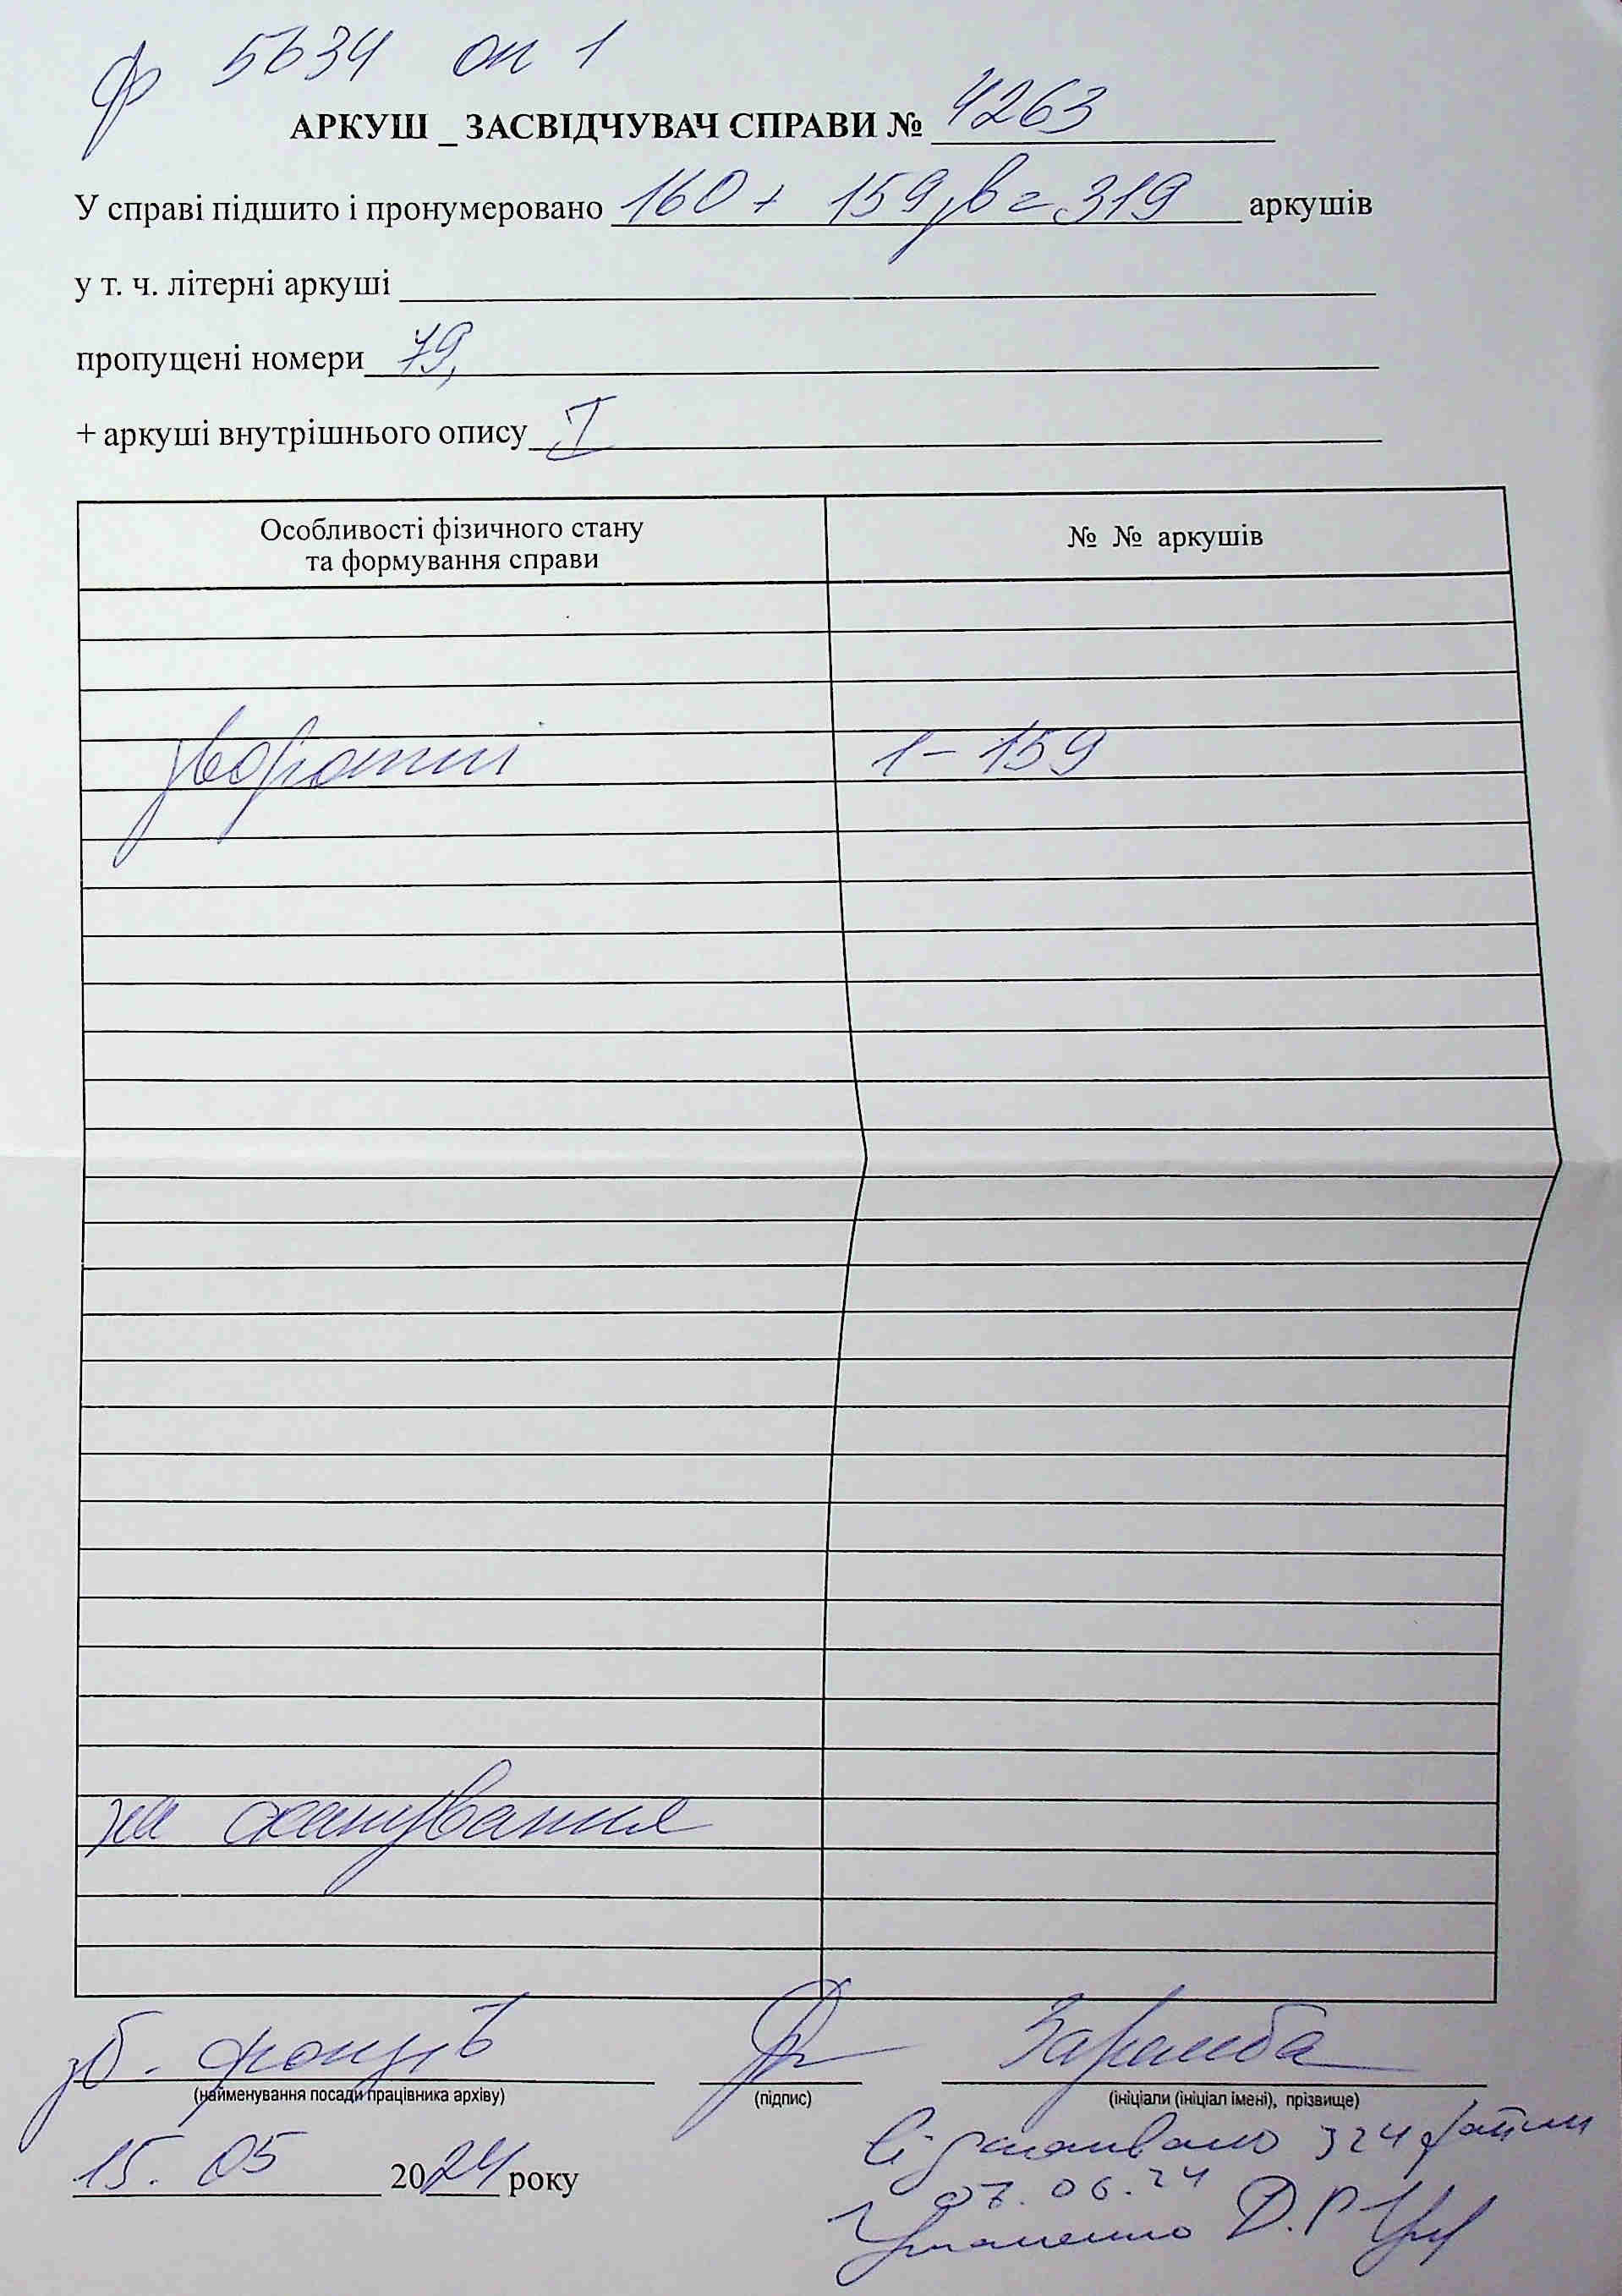 ф 5634 оп 1
АРКУШ _ ЗАСВІДЧУВАЧ СПРАВИ № 4263
У справі підшито і пронумеровано 160 + 159 зв = 319 аркушів
у т. ч. літерні аркуші
пропущені номери 79,
+ аркуші внутрішнього опису I
Особливості фізичного стану
та формування справи
№ № аркушів
зворотні 1 – 159
на сканування
зб. фондів Заремба
(найменування посади працівника архіву) (підпис) (ініціали (ініціал імені), прізвище)
15. 05 2024 року
Відскановано 324 файли
07.06.24
Д.Р